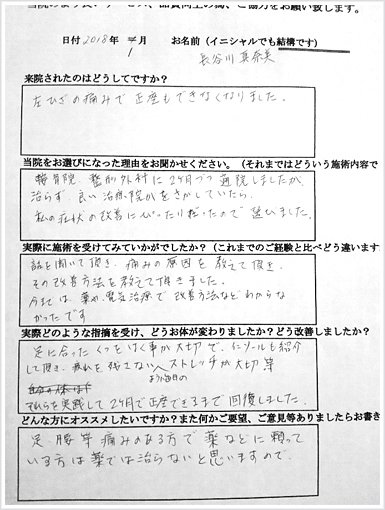 当院のより良いサービス、品質向上の為、ご協力をお願い致します。
日付 2018 年 1 月 お名前(イニシャルでも結構です)
長谷川 真奈美
来院されたのはどうしてですか?
左ひざの痛みで正座もできなくなりました。
当院をお選びになった理由をお聞かせください。(それまではどういう施術内容で
接骨院、整形外科に2ヶ月づつ通院しましたが、
治らず、良い治療院がをさがしていたら、
私の症状の改善にぴったりだったので選びました。
実際に施術を受けてみていかがでしたか?(これまでのご経験と比べどう違います
話を聞いて頂き、痛みの原因を教えて頂き、
その改善方法を教えて頂きました。
今までは、薬や電気治療で改善方法などわからな
かったです
実際どのような指摘を受け、どうお体が変わりましたか?どう改善しましたか?
足に合ったくつをはく事が大切で、インソールも紹介
して頂き、疲れを残さない ストレッチが大切 等
それらを実践して2ヶ月で正座できるまで回復しました。
どんな方にオススメしたいですか?また何かご要望、ご意見等ありましたらお書き
足、腰等痛みのある方で薬などに頼って
いる方は薬では治らないと思いますので。